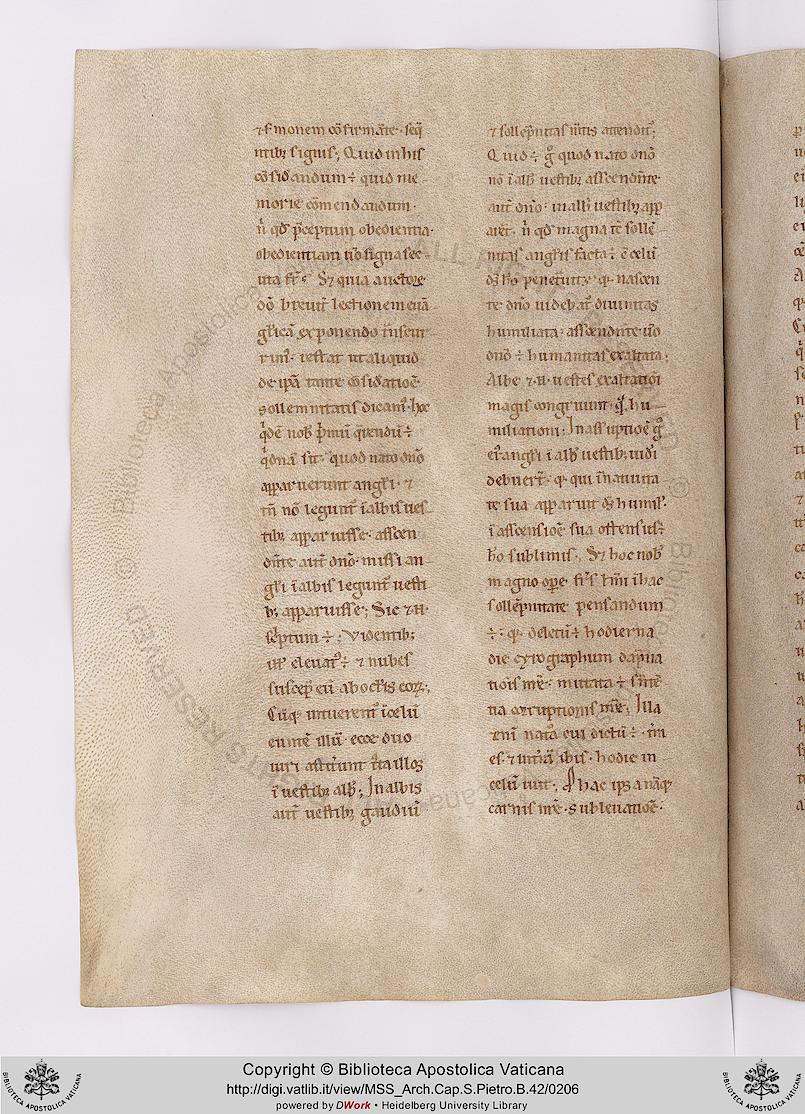 ⁊ s̄monem cōfirmāte · seq̄
ntibꝫ signis ; Quid in his
cōsid̄andum ÷ quid me
morie cōmendandum ·
n̄ qđ p̄ceptum obedientia ·
obedientiam ū̊o signa sec
uta s̄t ? Sꝫ quia auctore
dō breuit̄ lectionem euā
gl̄icā exponendo t̄nscur
rim᷒ · restat ut aliquid
de ip̄a tante cōsid̄atiōe
sollemnitatis dicam᷒ · hoc
q̇dē nob̄ p̄mū q̄rendū ÷
q̇dnā sit · quod nato dn̄o
apparuerunt angl̄i · ⁊
tn̄ nō legunt̄ ī albis ues
tibꝫ apparuisse · ascen
dn̄te aut̄ dn̄o · missi an
gl̄i ī albis legunt̄ uesti
bꝫ apparuisse ; Sic ⁊ n̄ ·
sc̄ptum ÷ ; Videntibꝫ
ill᷒ eleuat᷒ ÷ ⁊ nubes
suscep̄ eū ab oclīs eoꝝ ;
Cūq· intuerent̄ ī celū
euntē illū · ecce duo
uiri astit̄unt iͣxta illos
ī uestibꝫ alb̄ ; In albis
aut̄ uestibꝫ gaudiū
⁊ sollēpnitas m̄tis ostendit̄ ;
Quid ÷ g̊ quod nato dn̄o
nō ī alb̄ uestibꝫ asscendn̄te
aut̄ dn̄o · in alb̄ uestibꝫ app
arēt · n̄ qđ magna tc̄ sollē
nitas angl̄is facta ÷ · cū celū
dс̄ hō penet̄uit ? q· nascen
te dn̄o uidebat̄ diuinitas
humiliata · asscendn̄te ū̊o
dn̄o ÷ humanitas exaltata ;
Albe ⁊ n̄ uestes exaltatiōi
magis congruunt · qͣ hu
miliationi ; In assūptiōe g̊
ei᷒ angl̄i ī alb̄ uestibꝫ uid̄i
debuer̄t · q· qui ī natiuita
te sua apparuit dс̄ humil᷒ ·
ī asscensiōe sua ostensus ÷
hō sublimis ; Sꝫ hoc nob̄
magno ope · fr̄s km̄i ī hac
sollēpnitate pensandum
÷ : q· deletū ÷ hodierna
die cyrographum dāpna
tiois nr̄e · mutata ÷ snt̄ē
tia corruptionis nr̄e ; Illa
enī natᷓa cui dictū ÷ · t̄ra
es · ⁊ in t̄rā ibis · hodie in
celū iuit ; P hac ip̄sa nāq·
carnis nr̄e · subleuatiōe ·
Copyright © Biblioteca Apostolica Vaticana
http://digi.vatlib.it/view/MSS_Arch.Cap.S.Pietro.B.42/0206
powered by DWork • Heidelberg University Library